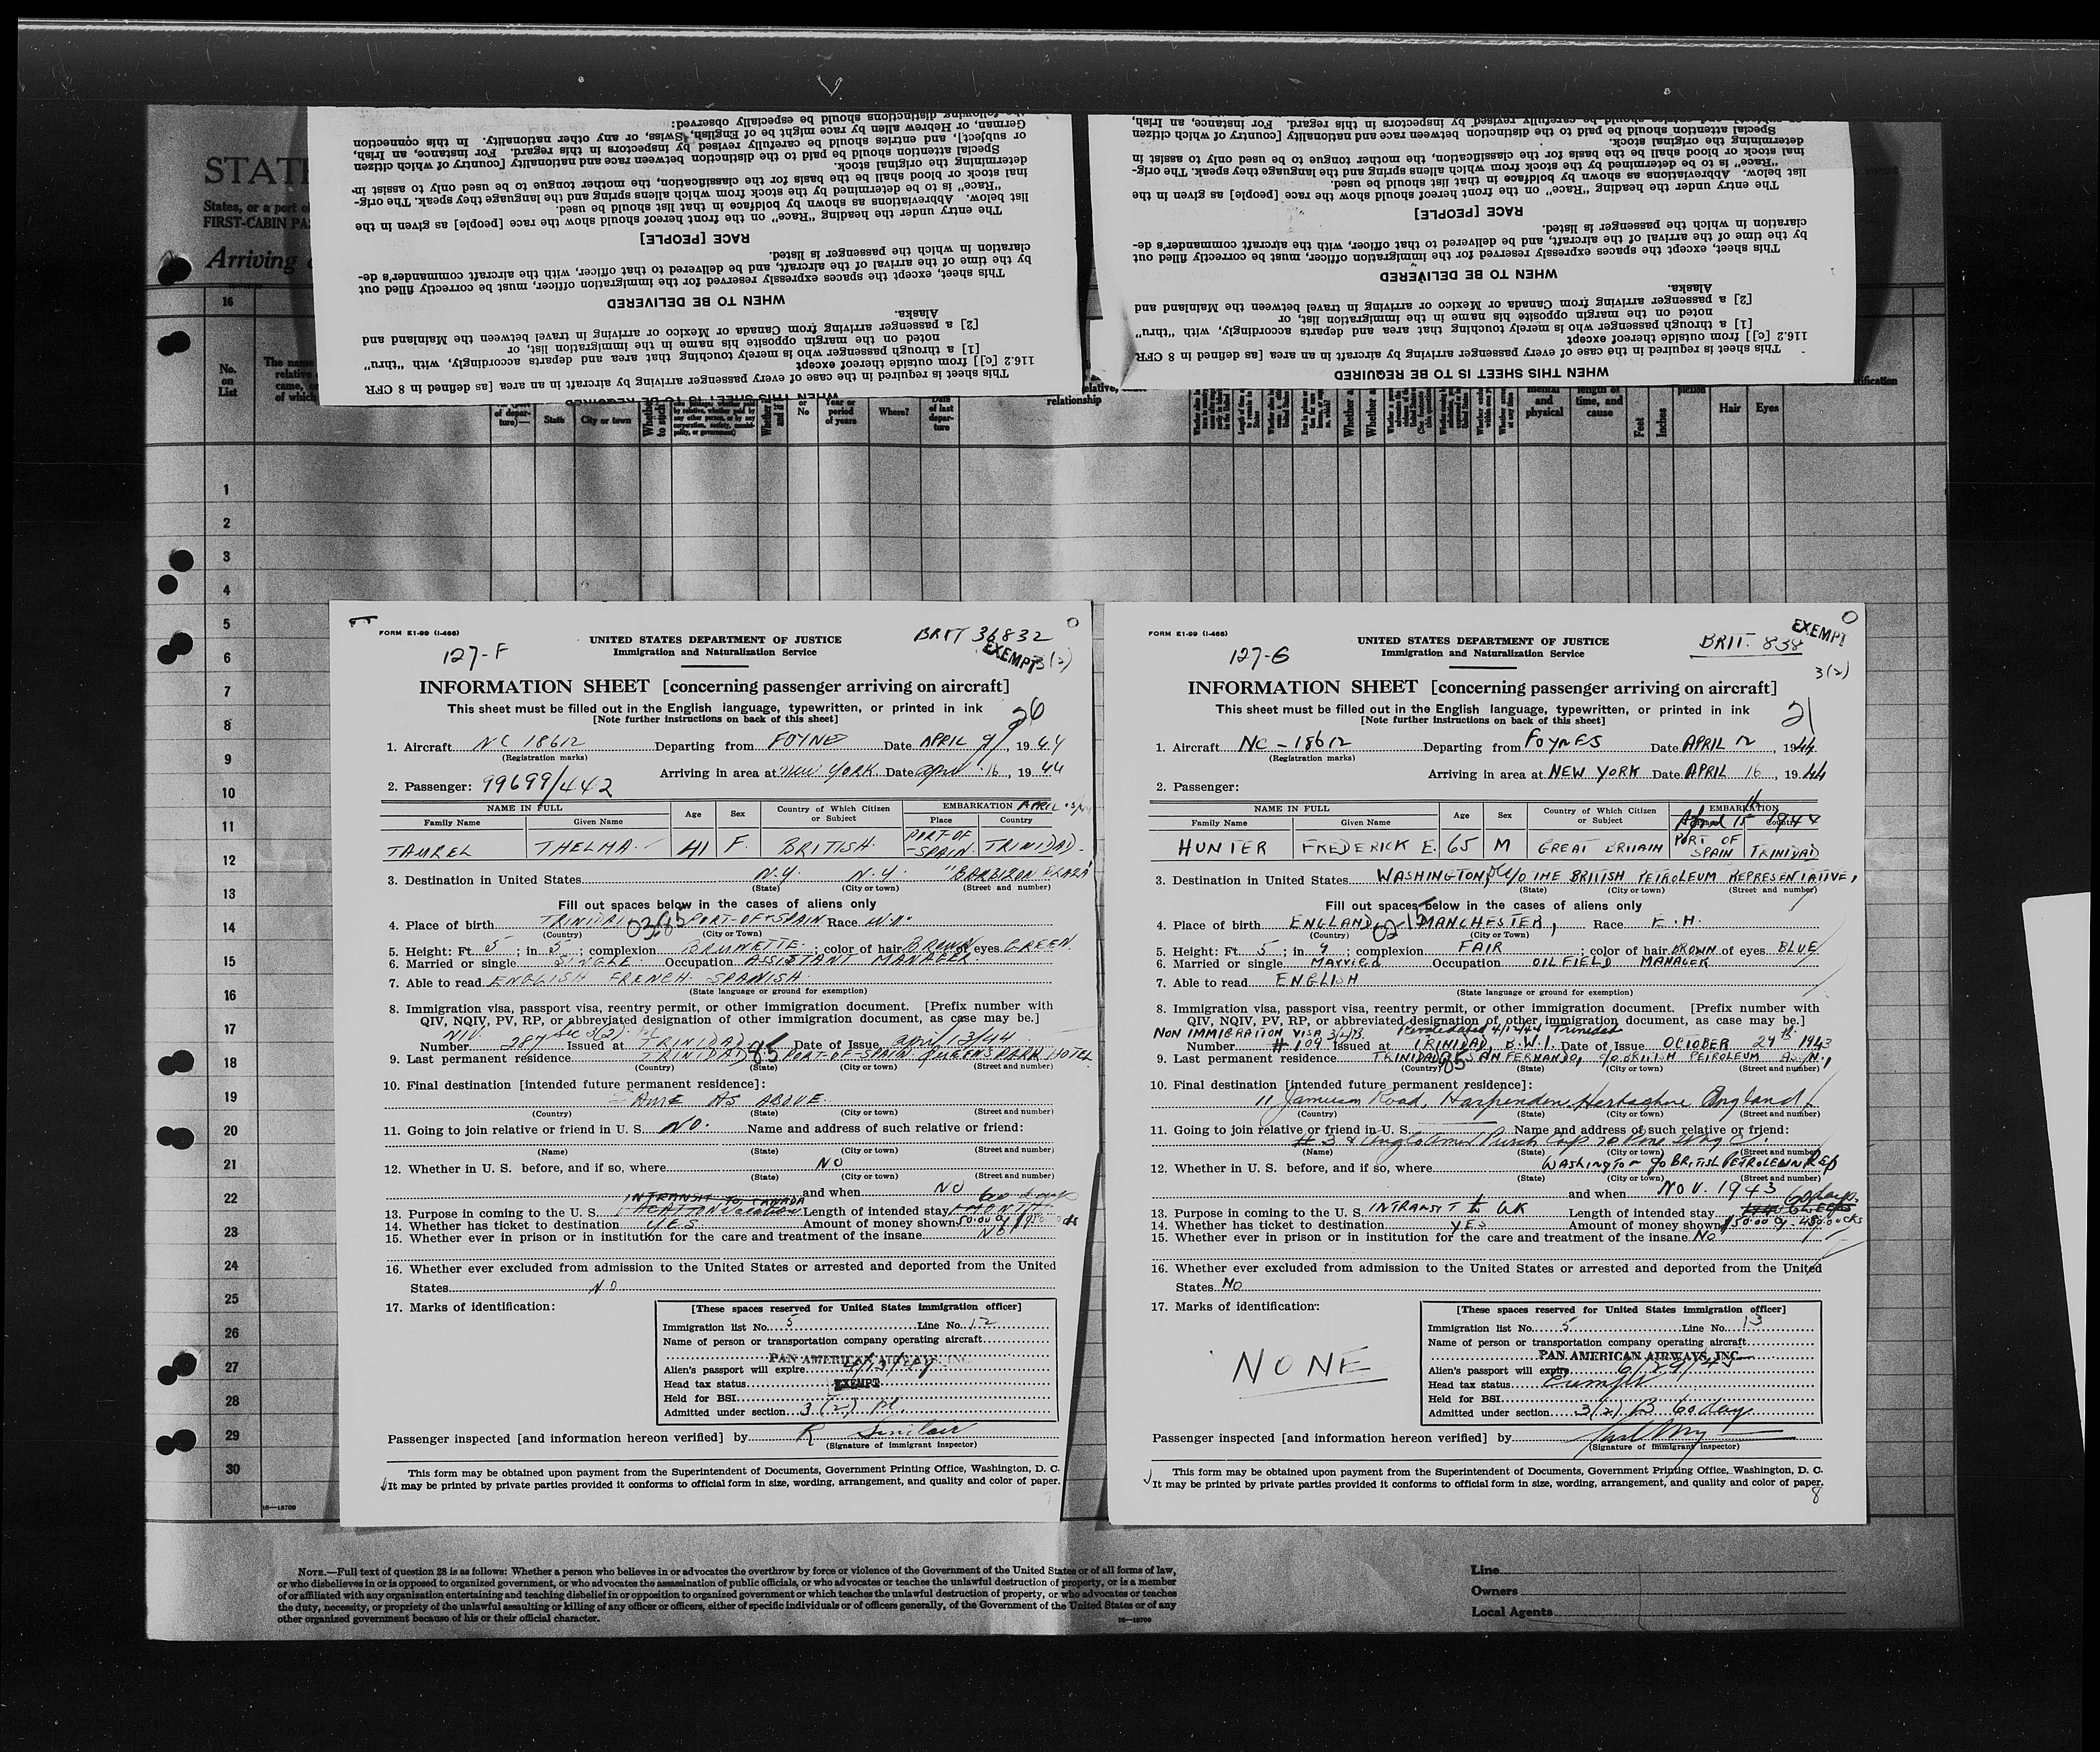 STATE
States, or a port of
FIRST-CABIN PA
Arriving
16
No.
on
List
The name
relative
came,
of which
of depar-
ture)—
State
City or town
or
No
Year or
period
of years
Where?
Date
of last
depar-
ture
relationship
mental
and
physical
length of
time, and
cause
Feet
Inches
Hair
Eyes
WHEN THIS SHEET IS TO BE REQUIRED
This sheet is required in the case of every passenger arriving by aircraft in an area [as defined in 8 CFR
116.2 [c]] from outside thereof except
[1] a through passenger who is merely touching that area and departs accordingly, with "thru"
noted on the margin opposite his name in the immigration list, or
[2] a passenger arriving from Canada or Mexico or arriving in travel between the Mainland and
Alaska.
WHEN TO BE DELIVERED
This sheet, except the spaces expressly reserved for the immigration officer, must be correctly filled out
by the time of the arrival of the aircraft, and be delivered to that officer, with the aircraft commander's de-
claration in which the passenger is listed.
RACE [PEOPLE]
The entry under the heading "Race" on the front hereof should show the race [people] as given in the
list below. Abbreviations as shown by boldface in that list should be used.
"Race" is to be determined by the stock from which aliens spring and the language they speak. The orig-
inal stock or blood shall be the basis for the classification, the mother tongue to be used only to assist in
determining the original stock.
Special attention should be paid to the distinction between race and nationality [country of which citizen
or subject], and entries should be carefully revised by inspectors in this regard. For instance, an Irish,
German, or Hebrew alien by race might be of English, Swiss, or any other nationality. In this connection
the following distinctions should be especially observed:
WHEN THIS SHEET IS TO BE REQUIRED
This sheet is required in the case of every passenger arriving by aircraft in an area [as defined in 8 CFR
116.2 [c]] from outside thereof except
[1] a through passenger who is merely touching that area and departs accordingly, with "thru"
noted on the margin opposite his name in the immigration list, or
[2] a passenger arriving from Canada or Mexico or arriving in travel between the Mainland and
Alaska.
WHEN TO BE DELIVERED
This sheet, except the spaces expressly reserved for the immigration officer, must be correctly filled out
by the time of the arrival of the aircraft, and be delivered to that officer, with the aircraft commander's de-
claration in which the passenger is listed.
RACE [PEOPLE]
The entry under the heading "Race" on the front hereof should show the race [people] as given in the
list below. Abbreviations as shown by boldface in that list should be used.
"Race" is to be determined by the stock from which aliens spring and the language they speak. The orig-
inal stock or blood shall be the basis for the classification, the mother tongue to be used only to assist in
determining the original stock.
Special attention should be paid to the distinction between race and nationality [country of which citizen
or subject], and entries should be carefully revised by inspectors in this regard. For instance, an Irish,
1
2
3
4
5
6
7
8
9
10
11
12
13
14
15
16
17
18
19
20
21
22
23
24
25
26
27
28
29
30
16—15709
FORM E1-99 (I-466)
127-F
UNITED STATES DEPARTMENT OF JUSTICE
Immigration and Naturalization Service
BRIT 36832
EXEMPT 3(2)
INFORMATION SHEET [concerning passenger arriving on aircraft]
This sheet must be filled out in the English language, typewritten, or printed in ink
[Note further instructions on back of this sheet]
26
1. Aircraft NC 18612 Departing from FOYNES Date APRIL 9, 1944
(Registration marks)
Arriving in area at New YORK Date april 16, 1944
2. Passenger: 99699/442
NAME IN FULL Age Sex Country of Which Citizen or Subject EMBARKATION APRIL
Family Name Given Name Place Country
TAUREL THELMA 41 F. BRITISH PORT-OF-SPAIN TRINIDAD
3. Destination in United States N.Y. N.Y. "BARBIZON PLAZA"
(State) (City or town) (Street and number)
Fill out spaces below in the cases of aliens only
4. Place of birth TRINIDAD PORT-OF-SPAIN Race W.I.
(Country) (City or Town)
5. Height: Ft. 5; in 5; complexion BRUNETTE; color of hair BROWN of eyes GREEN
6. Married or single SINGLE Occupation ASSISTANT MANAGER
7. Able to read ENGLISH FRENCH SPANISH
(State language or ground for exemption)
8. Immigration visa, passport visa, reentry permit, or other immigration document. [Prefix number with
QIV, NQIV, PV, RP, or abbreviated designation of other immigration document, as case may be.]
NIV sec 3(2)
Number 287 Issued at TRINIDAD Date of Issue april 13/44
9. Last permanent residence TRINIDAD 85 PORT-OF-SPAIN QUEENS PARK HOTEL
(Country) (State) (City or town) (Street and number)
10. Final destination [intended future permanent residence]:
SAME AS ABOVE
(Country) (State) (City or town) (Street and number)
11. Going to join relative or friend in U. S. NO. Name and address of such relative or friend:
(Name) (State) (City or town) (Street and number)
12. Whether in U. S. before, and if so, where NO
(State) (City or town) (Street and number)
and when NO
INTRANSIT TO CANADA 60 days
13. Purpose in coming to the U. S. VACATION Vacation Length of intended stay 1 MONTH
14. Whether has ticket to destination YES Amount of money shown 50.00
15. Whether ever in prison or in institution for the care and treatment of the insane NO
16. Whether ever excluded from admission to the United States or arrested and deported from the United
States NO
17. Marks of identification:
[These spaces reserved for United States immigration officer]
Immigration list No. 5 Line No. 12
Name of person or transportation company operating aircraft
PAN AMERICAN AIRWAYS, INC
Alien's passport will expire
Head tax status EXEMPT
Held for BSI
Admitted under section 3(2) pl.
Passenger inspected [and information hereon verified] by R Sinclair
(Signature of immigrant inspector)
This form may be obtained upon payment from the Superintendent of Documents, Government Printing Office, Washington, D. C.
It may be printed by private parties provided it conforms to official form in size, wording, arrangement, and quality and color of paper.
FORM E1-99 (I-466)
127-G
UNITED STATES DEPARTMENT OF JUSTICE
Immigration and Naturalization Service
BRIT. 838
EXEMPT
3(2)
INFORMATION SHEET [concerning passenger arriving on aircraft]
This sheet must be filled out in the English language, typewritten, or printed in ink
[Note further instructions on back of this sheet]
21
1. Aircraft NC-18612 Departing from FOYNES Date APRIL 12, 1944
(Registration marks)
Arriving in area at NEW YORK Date APRIL 16, 1944
2. Passenger:
NAME IN FULL Age Sex Country of Which Citizen or Subject EMBARKATION
April 15 1944
Family Name Given Name Country
HUNTER FREDERICK E. 65 M GREAT BRITAIN PORT OF SPAIN TRINIDAD
3. Destination in United States WASHINGTON, DC C/O THE BRITISH PETROLEUM REPRESENTATIVE,
(State) (City or town) (Street and number)
Fill out spaces below in the cases of aliens only
4. Place of birth ENGLAND, 02-15 MANCHESTER, Race E.H.
(Country) (City or Town)
5. Height: Ft. 5; in 9; complexion FAIR; color of hair BROWN of eyes BLUE
6. Married or single Married Occupation OILFIELD MANAGER
7. Able to read ENGLISH
(State language or ground for exemption)
8. Immigration visa, passport visa, reentry permit, or other immigration document. [Prefix number with
QIV, NQIV, PV, RP, or abbreviated designation of other immigration document, as case may be.]
NON IMMIGRATION VISA 3(2)B. Revalidated 4/12/44 Trinidad
Number #109 Issued at TRINIDAD, B.W.I. Date of Issue OCTOBER 29th 1943
9. Last permanent residence TRINIDAD 85 SAN FERNANDO, c/o BRITISH PETROLEUM
(Country) (State) (City or town) (Street and number)
10. Final destination [intended future permanent residence]:
11 Jameson Road, Harpenden, Hertsshire England
(Country) (State) (City or town) (Street and number)
11. Going to join relative or friend in U. S. Name and address of such relative or friend:
(Name) (State) (City or town) (Street and number)
12. Whether in U. S. before, and if so, where WASHINGTON c/o BRITISH PETROLEUM REP
(State) (City or town) (Street and number)
and when NOV. 1943
60 days
13. Purpose in coming to the U. S. INTRANSIT to UK Length of intended stay 6 WEEKS
14. Whether has ticket to destination YES Amount of money shown $50.00
15. Whether ever in prison or in institution for the care and treatment of the insane NO
16. Whether ever excluded from admission to the United States or arrested and deported from the United
States NO
17. Marks of identification:
NONE
[These spaces reserved for United States immigration officer]
Immigration list No. 5 Line No. 13
Name of person or transportation company operating aircraft
PAN AMERICAN AIRWAYS, INC
Alien's passport will expire 6/29/45
Head tax status Exempt
Held for BSI
Admitted under section 3(2) B 60 days
Passenger inspected [and information hereon verified] by
(Signature of immigrant inspector)
This form may be obtained upon payment from the Superintendent of Documents, Government Printing Office, Washington, D. C.
It may be printed by private parties provided it conforms to official form in size, wording, arrangement, and quality and color of paper.
8
NOTE.—Full text of question 28 is as follows: Whether a person who believes in or advocates the overthrow by force or violence of the Government of the United States or of all forms of law,
or who disbelieves in or is opposed to organized government, or who advocates the assassination of public officials, or who advocates or teaches the unlawful destruction of property, or is a member
of or affiliated with any organization entertaining and teaching disbelief in or opposition to organized government or which teaches the unlawful destruction of property, or who advocates or teaches
the duty, necessity, or propriety of the unlawful assaulting or killing of any officer or officers, either of specific individuals or of officers generally, of the Government of the United States or of any
other organized government because of his or their official character.
16—15709
Line
Owners
Local Agents